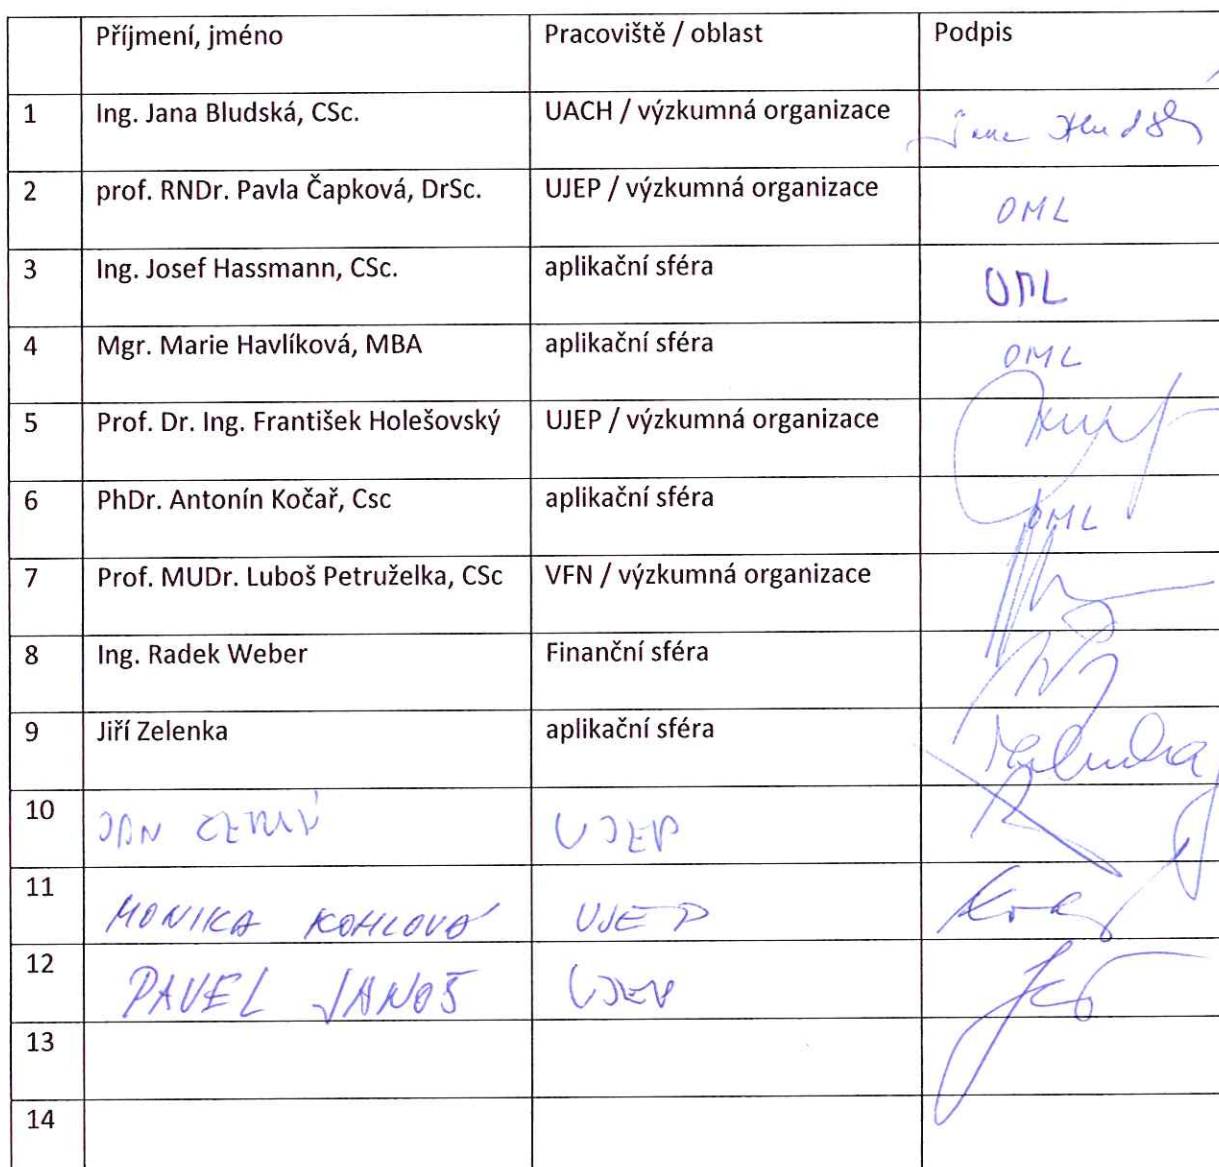 Příjmení, jméno Pracoviště / oblast Podpis
1 Ing. Jana Bludská, CSc. UACH / výzkumná organizace
2 prof. RNDr. Pavla Čapková, DrSc. UJEP / výzkumná organizace OML
3 Ing. Josef Hassmann, CSc. aplikační sféra OML
4 Mgr. Marie Havlíková, MBA aplikační sféra OML
5 Prof. Dr. Ing. František Holešovský UJEP / výzkumná organizace
6 PhDr. Antonín Kočař, Csc aplikační sféra OML
7 Prof. MUDr. Luboš Petruželka, CSc VFN / výzkumná organizace
8 Ing. Radek Weber Finanční sféra
9 Jiří Zelenka aplikační sféra
10 JAN UJEP
11 MONIKA KOHLOVÁ UJEP
12 PAVEL JANOŠ UJEP
13
14